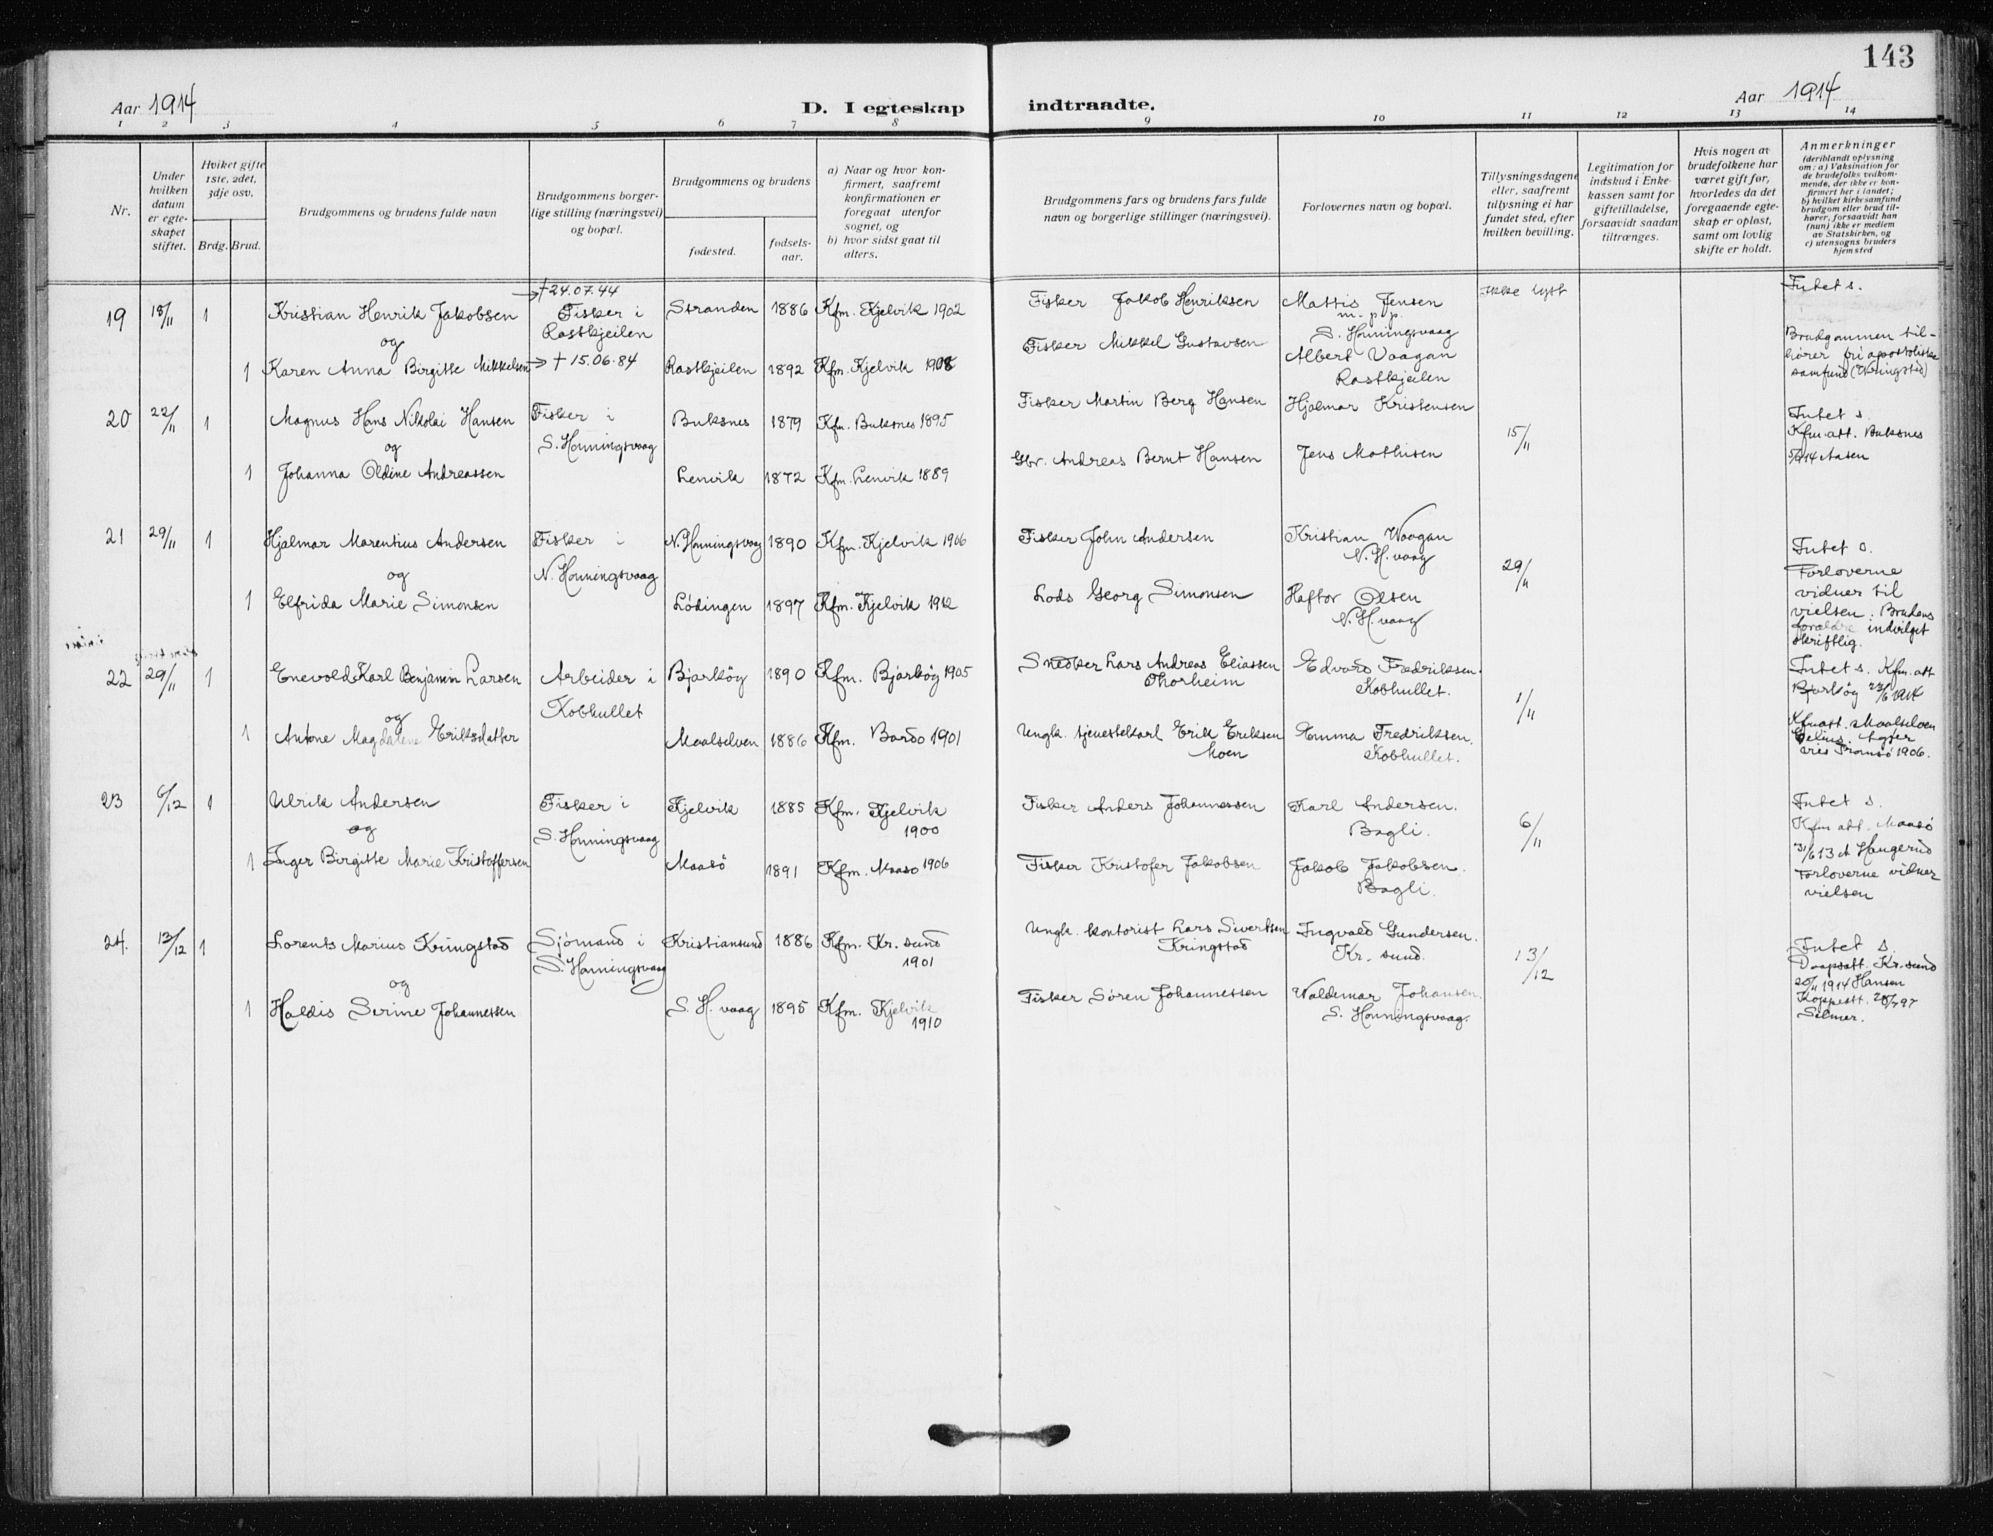 143
Aar 1914
D. I egteskap indtraadte.
Aar 1914
1 2 3 4 5 6 7 8 9 10 11 12 13 14
Nr.
Under hvilken datum er egteskapet stiftet.
Hvilket gifte 1ste, 2det, 3dje osv.
Brdg. Brud.
Brudgommens og brudens fulde navn
Brudgommens borgerlige stilling (næringsvei) og bopæl.
Brudgommens og brudens
fødested.
fødselsaar.
a) Naar og hvor konfirmert, saafremt konfirmationen er foregaat utenfor sognet, og
b) hvor sidst gaat til alters.
Brudgommens fars og brudens fars fulde navn og borgerlige stillinger (næringsvei).
Forlovernes navn og bopæl.
Tillysningsdagene eller, saafremt tillysning ei har fundet sted, efter hvilken bevilling.
Legitimation for indskud i Enkekassen samt for giftetilladelse, forsaavidt saadan tiltrænges.
Hvis nogen av brudefolkene har været gift før, hvorledes da det foregaaende egteskap er opløst, samt om lovlig skifte er holdt.
Anmerkninger
(deriblandt oplysning om: a) Vaksination for de brudefolks vedkommende, der ikke er konfirmert her i landet; b) hvilket kirkesamfund brudgom eller brud tilhører, forsaavidt han (hun) ikke er medlem av Statskirken, og c) utensogns bruders hjemsted
19 18/11 1 Kristian Henrik Jakobsen → † 24.07.44 Fisker i Rastkjeilen Stranden 1886 Kfm. Kjelvik 1902 Fisker Jakob Henriksen Mattis Jensen m.p.p. S. Honningsvaag Ikke lyst Intet s.
og
1 Karen Anna Birgitte Mikkelsen → † 15.06.84 Rastkjeilen 1892 Kfm. Kjelvik 1908 Fisker Mikkel Gustavsen Albert Vaagan Rastkjeilen Brudgommen tilhører fri apostoliske samfund
20 22/11 1 Magnus Hans Nikolai Hansen Fisker i S. Honningsvaag Buksnes 1879 Kfm. Buksnes 1895 Fisker Martin Berg Hansen Hjalmar Kristensen 15/11 Intet s. Kfm.att. Buksnes Aasen
og
1 Johanna Oldine Andreassen Lenvik 1872 Kfm. Lenvik 1889 Gbr. Andreas Bernt Hansen Jens Mathisen
21 29/11 1 Hjalmar Marentius Andersen Fisker i N. Honningsvaag N. Honningsvaag 1890 Kfm. Kjelvik 1906 Fisker John Andersen Kristian Waagan N. H.vaag 29/11 Intet s. Forloverne vidner til vielsen. Brudens forældre indvilget skriftlig.
og
1 Elfrida Marie Simonsen Lödingen 1897 Kfm. Kjelvik 1912 Lods Georg Simonsen Haftor Olsen N. H.vaag
22 29/11 1 Enevold Karl Benjamin Larsen Arbeider i Kobhullet Bjarköy 1890 Kfm. Bjarköy 1905 Snedker Lars Andreas Eliassen Thorheim Edvard Fredriksen. Kobhullet. 1/11 Intet s. Kfm.att Bjarköy 23/6 1914
og
1 Antone Magdalene Eriksdatter Maalselven 1886 Kfm. Bardo 1901 Ungk. tjenestekarl Erik Eriksen Moen Emma Fredriksen. Kobhullet. Kfm att. Maalselven Tromsö 1906.
23 6/12 1 Ulrik Andersen Fisker i S. Honningsvaag Kjelvik 1885 Kfm. Kjelvik 1900 Fisker Anders Johannessen Karl Andersen. Bagli. 6/11 Intet s. Kfm att. Maasö 31/6 13 A Haugerud Forloverne vidner vielsen
og
1 Inger Birgitte Marie Kristoffersen Maasö 1891 Kfm. Maasö 1906 Fisker Kristofer Jakobsen Jakob Jakobsen. Bagli.
24. 13/12 1 Lorents Marius Kringstad Sjömand i S. Honningsvaag Kristiansund 1886 Kfm. Kr. sund 1901 Ungk. kontorist Lars Sivertsen Kringstad Ingvald Gundersen. Kr. sund. 13/12 Intet s. Daapsatt. Kr.sund 20/11 1914 Hansen Koppeatt. 28/7 97 Selmer.
og
1 Haldis Serine Johannessen S. H. vaag 1895 Kfm. Kjelvik 1910 Fisker Sören Johannessen Waldemar Johansen. S. Honningsvaag.